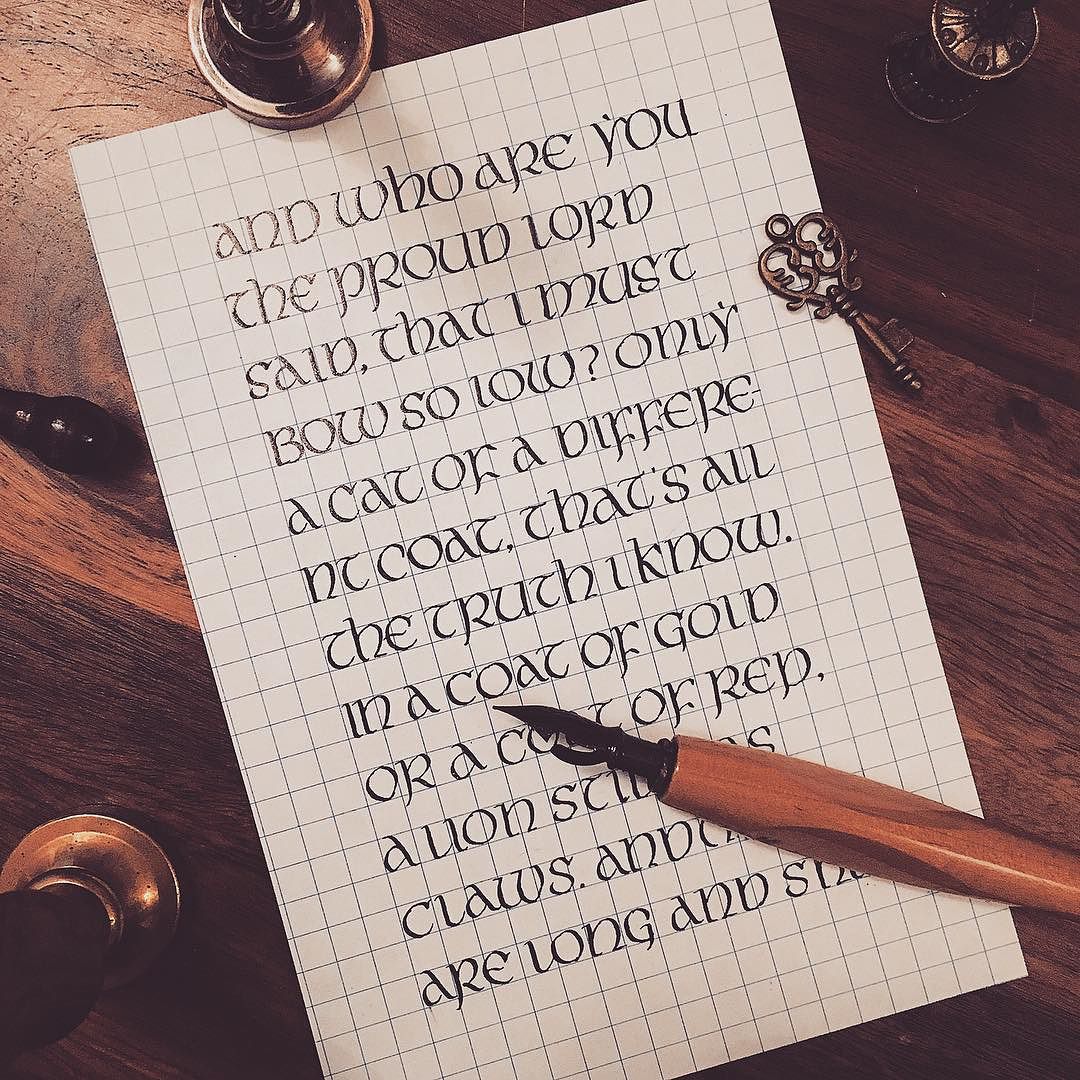 and who are you
the proud lord
said, that I must
bow so low? only
a cat of a differe-
nt coat, that's all
the truth I know.
in a coat of gold
or a coat of red,
a lion still
claws. and
are long and